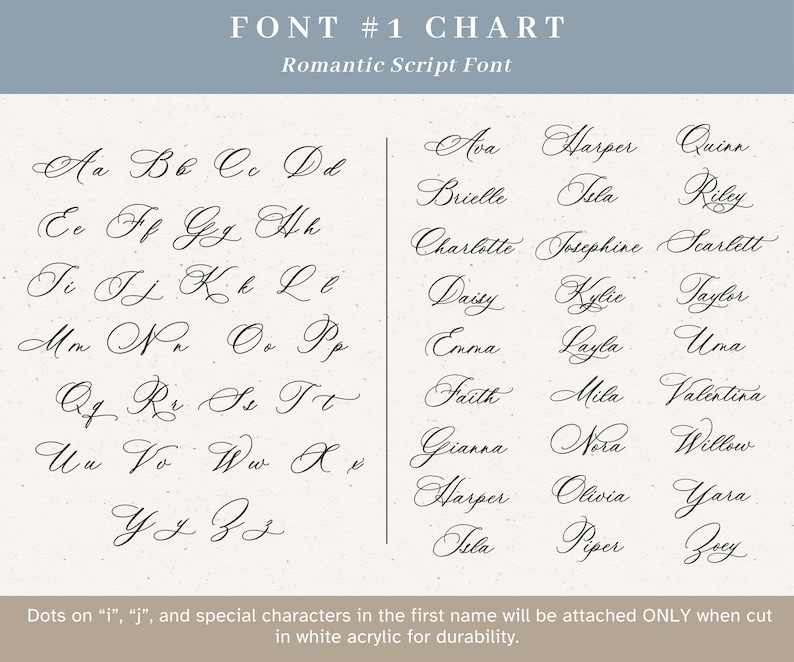 FONT #1 CHART
Romantic Script Font
Aa Bb Cc Dd
Ee Ff Gg Hh
Ii Jj Kk Ll
Mm Nn Oo Pp
Qq Rr Ss Tt
Uu Vv Ww Xx
Yy Zz
Ava Harper Quinn
Brielle Isla Riley
Charlotte Josephine Scarlett
Daisy Kylie Taylor
Emma Layla Uma
Faith Mila Valentina
Gianna Nora Willow
Harper Olivia Yara
Isla Piper Zoey
Dots on “i”, “j”, and special characters in the first name will be attached ONLY when cut
in white acrylic for durability.